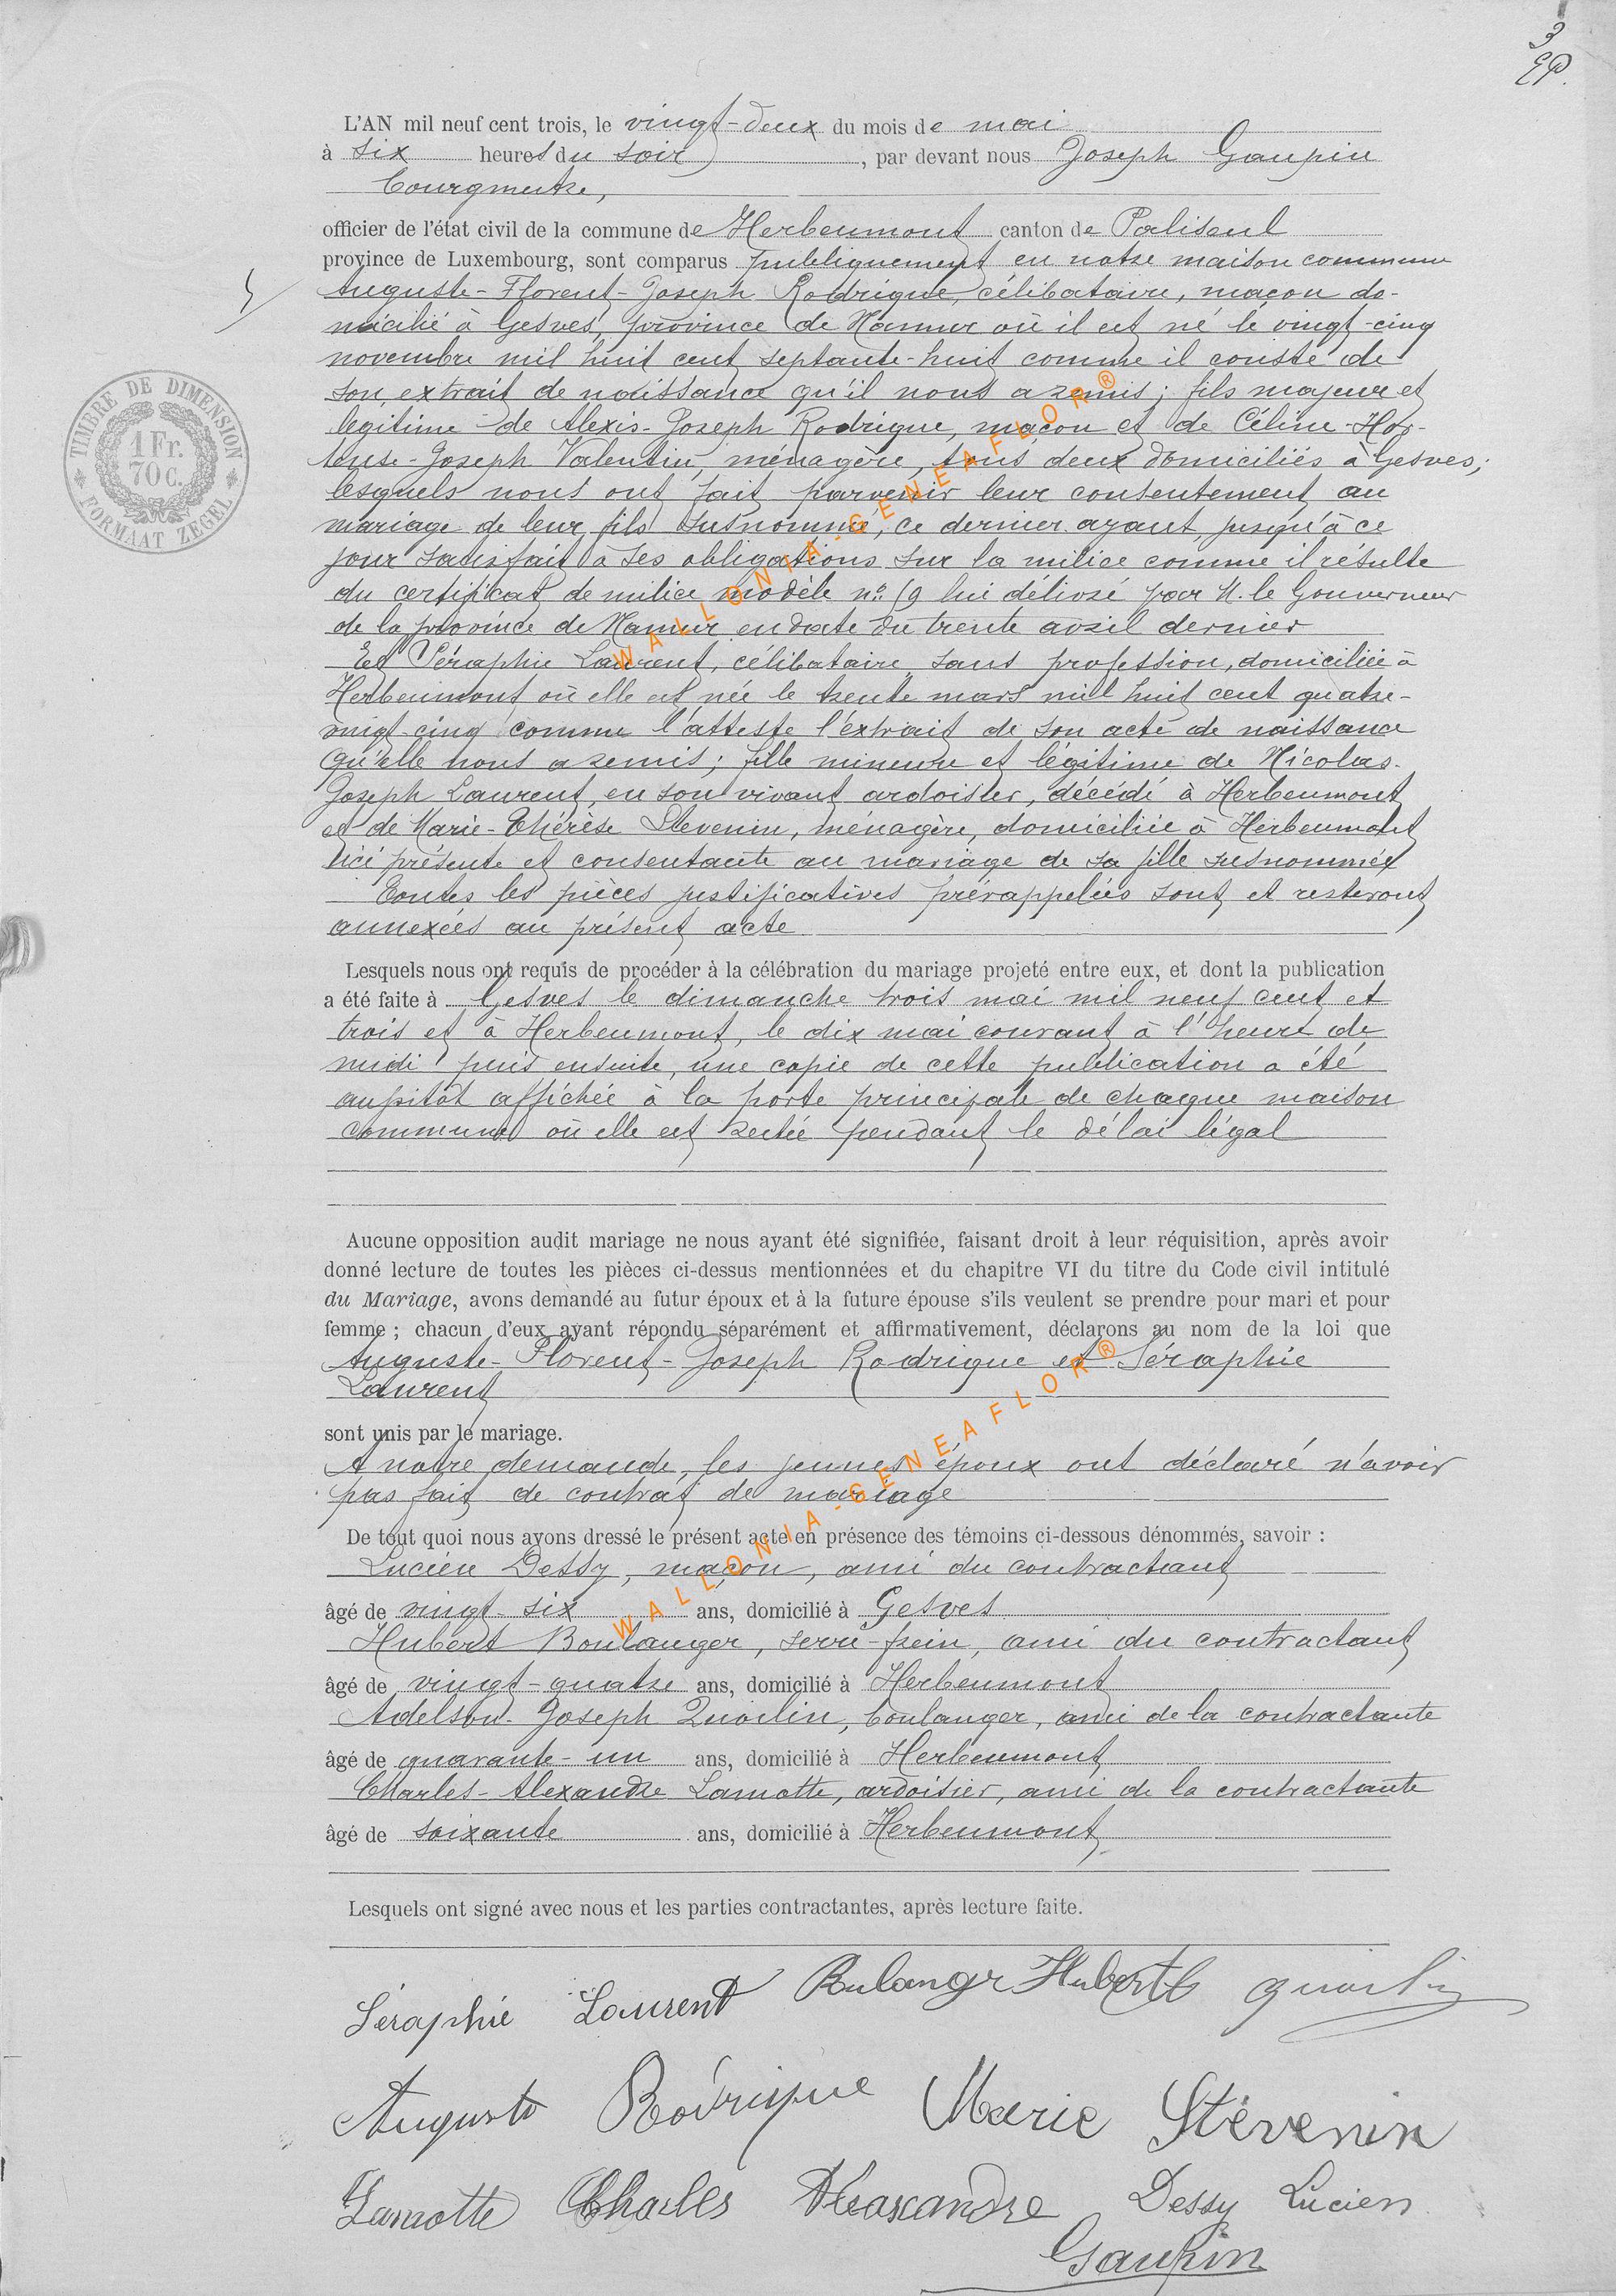 3
L'AN mil neuf cent trois, le vingt-deux du mois de mai
à six heures du soir, par devant nous Joseph Gaupin
bourgmestre,
officier de l'état civil de la commune de Herbeumont canton de Paliseul
province de Luxembourg, sont comparus publiquement en notre maison commune
Auguste-Florent-Joseph Rodrigue, célibataire, maçon do-
micilié à Gesves, province de Namur où il est né le vingt-cinq
novembre mil huit cent septante-huit comme il conste de
son extrait de naissance qu'il nous a remis; fils majeur et
légitime de Alexis-Joseph Rodrigue, maçon et de Céline-Hor-
tense-Joseph Valentin, ménagère, tous deux domiciliés à Gesves;
lesquels nous ont fait parvenir leur consentement au
mariage de leur fils susnommé, ce dernier ayant, jusqu'à ce
jour satisfait à ses obligations sur la milice comme il résulte
du certificat de milice modèle n° 19 lui délivré par M. le Gouverneur
de la province de Namur en date du trente avril dernier
Et Séraphie Laurent, célibataire, sans profession, domiciliée à
Herbeumont où elle est née le trente mars mil huit cent quatre-
vingt-cinq comme l'atteste l'extrait de son acte de naissance
qu'elle nous a remis; fille mineure et légitime de Nicolas-
Joseph Laurent, en son vivant ardoisier, décédé à Herbeumont
et de Marie-Thérèse Stevenin, ménagère, domiciliée à Herbeumont
ici présente et consentante au mariage de sa fille susnommée
Toutes les pièces justificatives prérappelées sont et resteront
annexées au présent acte
TIMBRE DE DIMENSION
1 Fr.
70 c.
FORMAAT ZEGEL
Lesquels nous ont requis de procéder à la célébration du mariage projeté entre eux, et dont la publication
a été faite à Gesves le dimanche trois mai mil neuf cent et
trois et à Herbeumont, le dix mai courant à l'heure de
midi puis ensuite, une copie de cette publication a été
aussitôt affichée à la porte principale de chaque maison
commune où elle est restée pendant le délai légal
Aucune opposition audit mariage ne nous ayant été signifiée, faisant droit à leur réquisition, après avoir
donné lecture de toutes les pièces ci-dessus mentionnées et du chapitre VI du titre du Code civil intitulé
du Mariage, avons demandé au futur époux et à la future épouse s'ils veulent se prendre pour mari et pour
femme ; chacun d'eux ayant répondu séparément et affirmativement, déclarons au nom de la loi que
Auguste-Florent-Joseph Rodrigue et Séraphie
Laurent
sont unis par le mariage.
A notre demande, les jeunes époux ont déclaré n'avoir
pas fait de contrat de mariage
De tout quoi nous avons dressé le présent acte en présence des témoins ci-dessous dénommés, savoir :
Lucien Dessy, maçon, ami du contractant
âgé de vingt-six ans, domicilié à Gesves
Hubert Boulanger, serre-frein, ami du contractant
âgé de vingt-quatre ans, domicilié à Herbeumont
Adelson-Joseph Quoilin, boulanger, ami de la contractante
âgé de quarante-un ans, domicilié à Herbeumont
Charles-Alexandre Lamotte, ardoisier, ami de la contractante
âgé de soixante ans, domicilié à Herbeumont
Lesquels ont signé avec nous et les parties contractantes, après lecture faite.
Séraphie Laurent Boulanger Hubert
Auguste Rodrigue Marie Stévenin
Lamotte Charles Alexandre Dessy Lucien
Gaupin
WALLONIA-GENEAFLOR®
WALLONIA-GENEAFLOR®